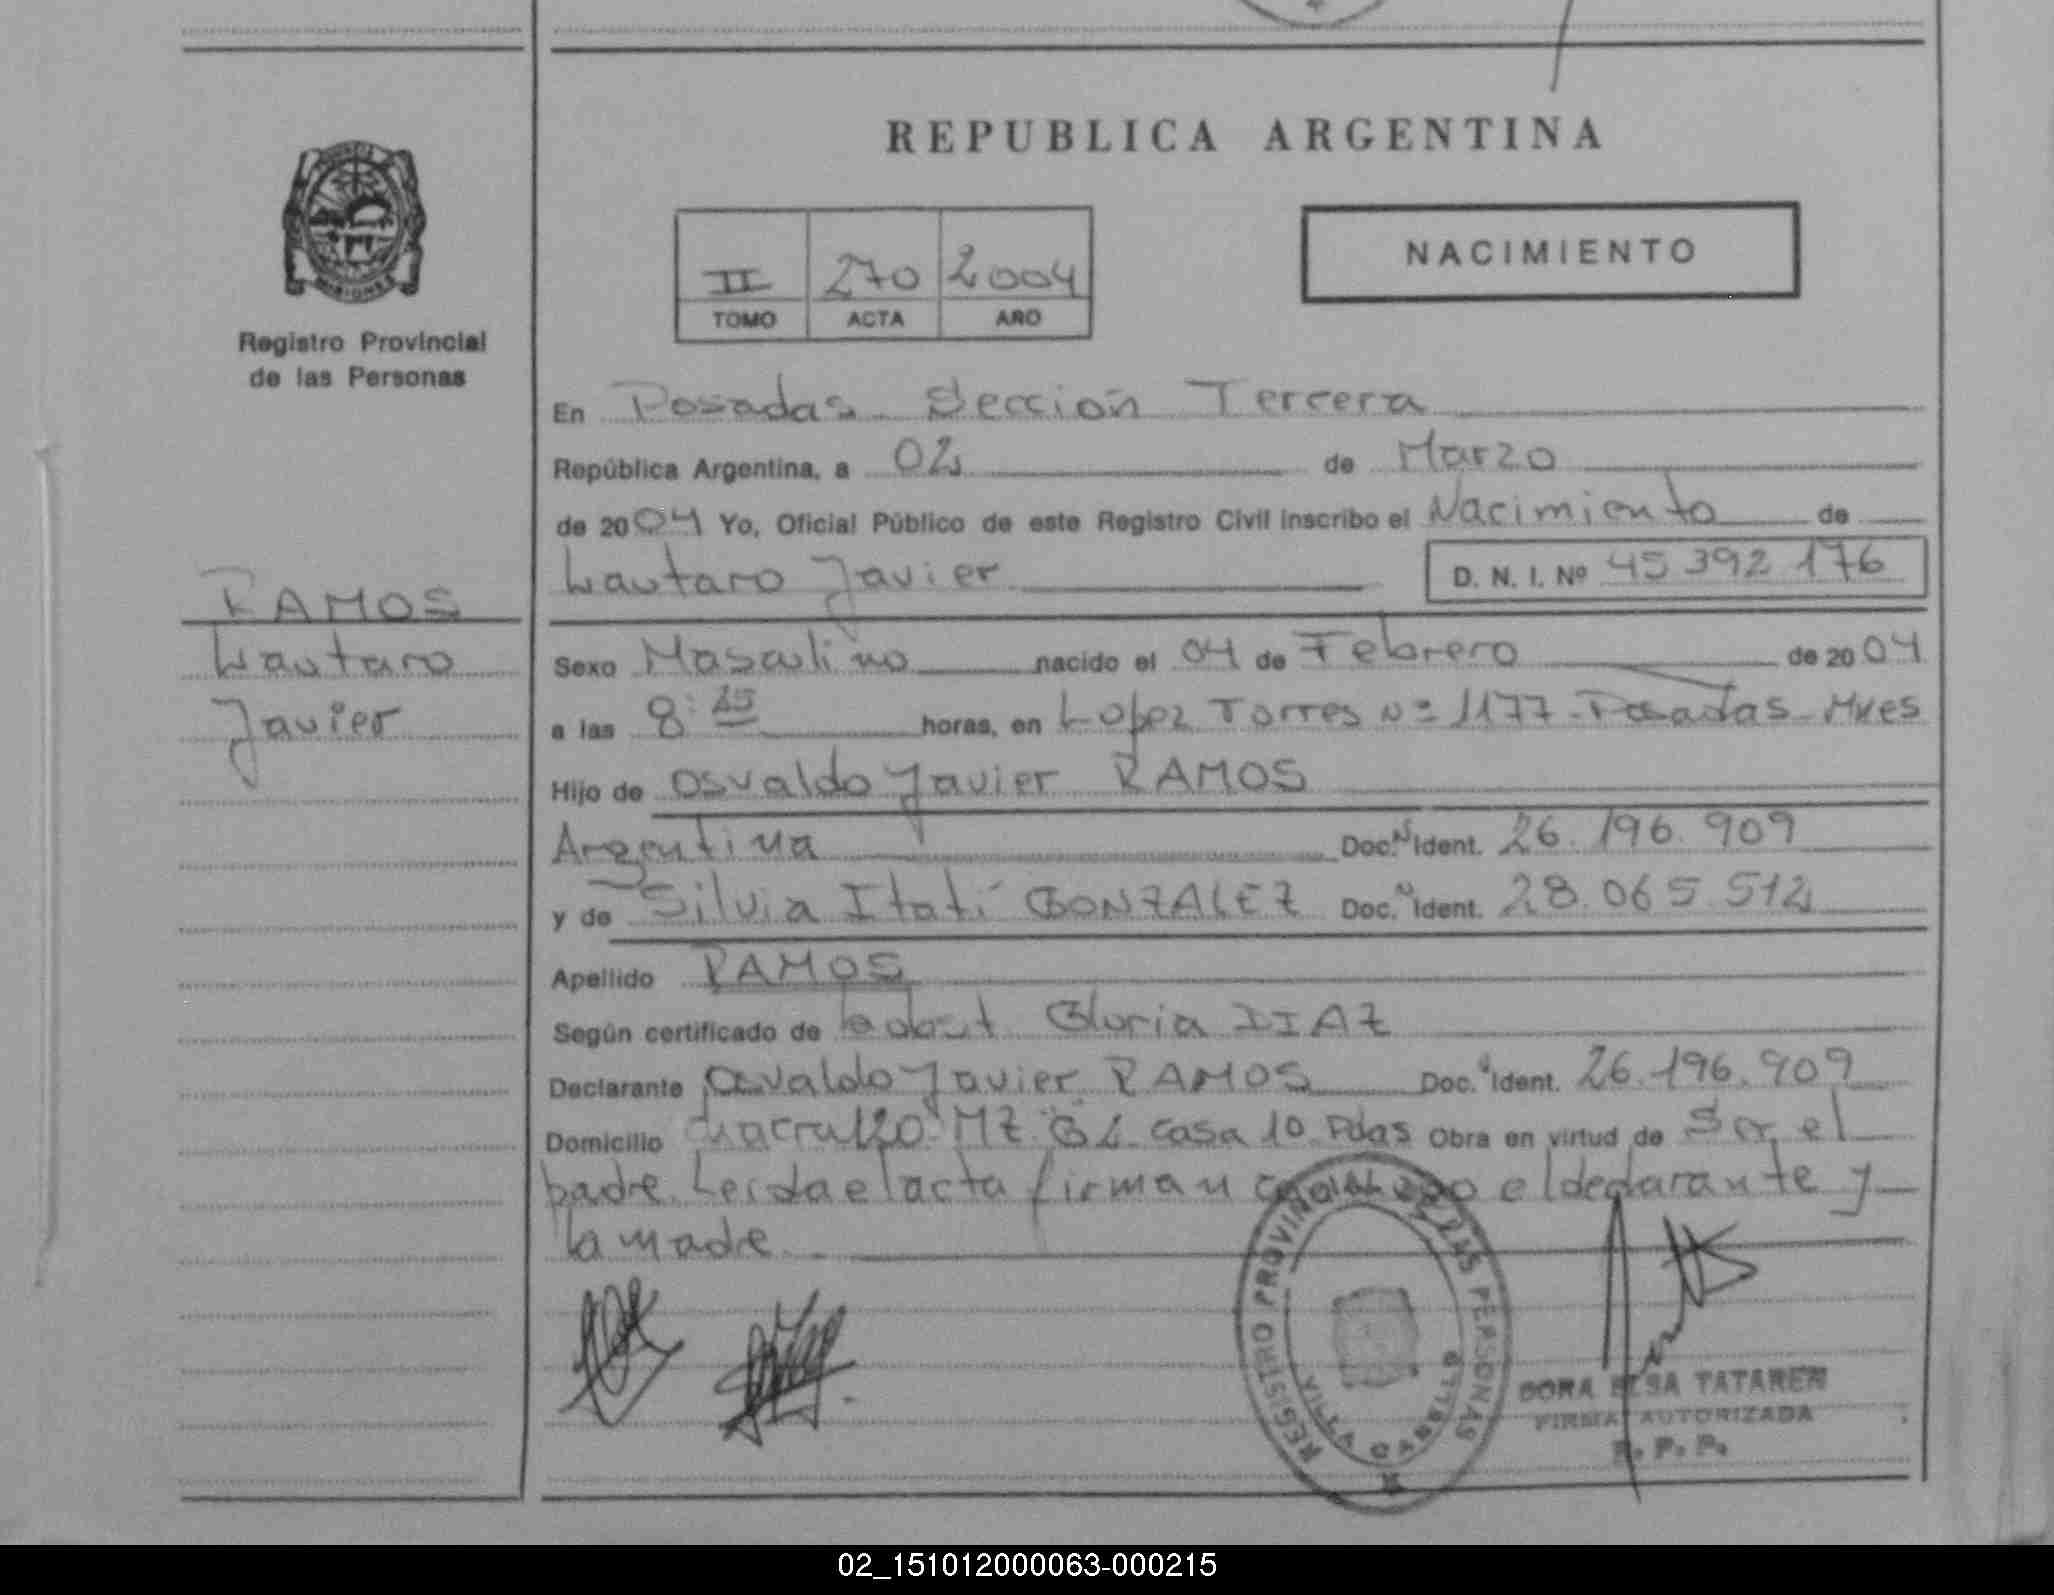 REPUBLICA ARGENTINA
MISIONES
Registro Provincial
de las Personas
II 270 2004
TOMO ACTA AÑO
NACIMIENTO
En Posadas Sección Tercera
República Argentina, a 02 de Marzo
de 2004 Yo, Oficial Público de este Registro Civil inscribo el Nacimiento de
Lautaro Javier D. N. I. Nº 45 392 176
RAMOS
Lautaro
Javier
Sexo Masculino nacido el 04 de Febrero de 2004
a las 8:25 horas, en Lopez Torres Nº 1177 - Posadas - Mnes
Hijo de Osvaldo Javier RAMOS
Argentina Doc. N Ident. 26.196.909
y de Silvia Itatí GONZALEZ Doc. Ident. 28.065.512
Apellido RAMOS
Según certificado de Gloria DIAZ
Declarante Osvaldo Javier RAMOS Doc. Ident. 26.196.909
Domicilio Chacra 120 MZ casa 10 Pdas Obra en virtud de Ser el
padre. Leida el acta firman el declarante y
la madre.
REGISTRO PROVINCIAL DE LAS PERSONAS
VILLA CABELLO
DORA ELSA TATAREN
FIRMA AUTORIZADA
R. P. P.
02_151012000063-000215